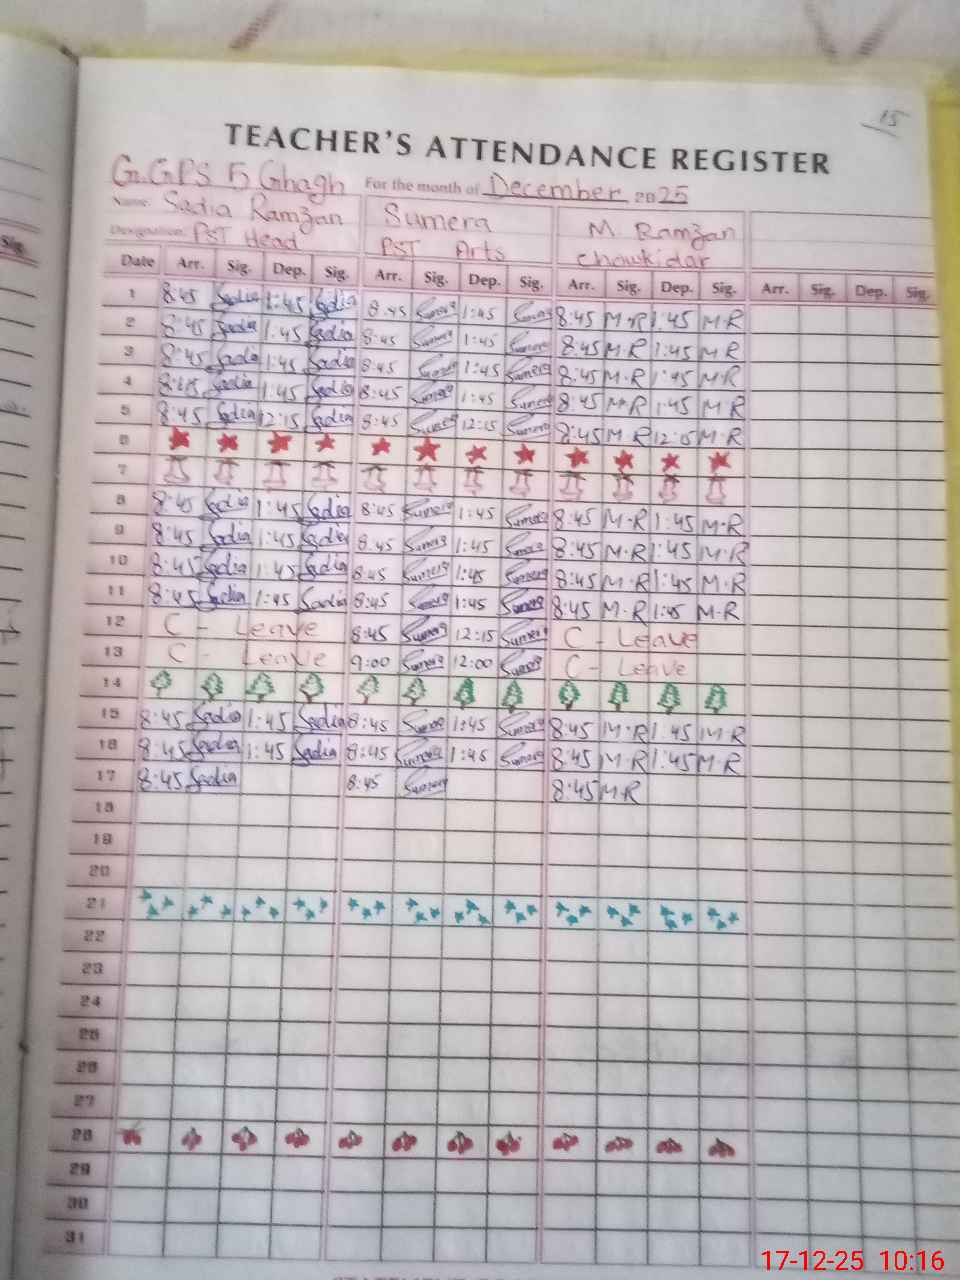 15
TEACHER'S ATTENDANCE REGISTER
G.GPS 5 Ghagh For the month of December 2025
Name: Sadia Ramzan Sumera M. Ramzan
Designation: PST Head PST Arts Chowkidar
Date Arr. Sig. Dep. Sig. Arr. Sig. Dep. Sig. Arr. Sig. Dep. Sig. Arr. Sig. Dep. Sig.
1 8:45 Sadia 1:45 Sadia 8:45 Sumera 1:45 Sumera 8:45 M.R 1:45 M.R
2 8:45 Sadia 1:45 Sadia 8:45 Sumera 1:45 Sumera 8:45 M.R 1:45 M.R
3 8:45 Sadia 1:45 Sadia 8:45 Sumera 1:45 Sumera 8:45 M.R 1:45 M.R
4 8:45 Sadia 1:45 Sadia 8:45 Sumera 1:45 Sumera 8:45 M.R 1:45 M.R
5 8:45 Sadia 12:15 Sadia 8:45 Sumera 12:15 Sumera 8:45 M.R 12:15 M.R
6
7
8 8:45 Sadia 1:45 Sadia 8:45 Sumera 1:45 Sumera 8:45 M.R 1:45 M.R
9 8:45 Sadia 1:45 Sadia 8:45 Sumera 1:45 Sumera 8:45 M.R 1:45 M.R
10 8:45 Sadia 1:45 Sadia 8:45 Sumera 1:45 Sumera 8:45 M.R 1:45 M.R
11 8:45 Sadia 1:45 Sadia 8:45 Sumera 1:45 Sumera 8:45 M.R 1:45 M.R
12 C - Leave 8:45 Sumera 12:15 Sumera C - Leave
13 C - Leave 9:00 Sumera 12:00 Sumera C - Leave
14
15 8:45 Sadia 1:45 Sadia 8:45 Sumera 1:45 Sumera 8:45 M.R 1:45 M.R
16 8:45 Sadia 1:45 Sadia 8:45 Sumera 1:45 Sumera 8:45 M.R 1:45 M.R
17 8:45 Sadia 8:45 Sumera 8:45 M.R
18
19
20
21
22
23
24
25
26
27
28
29
30
31
17-12-25 10:16